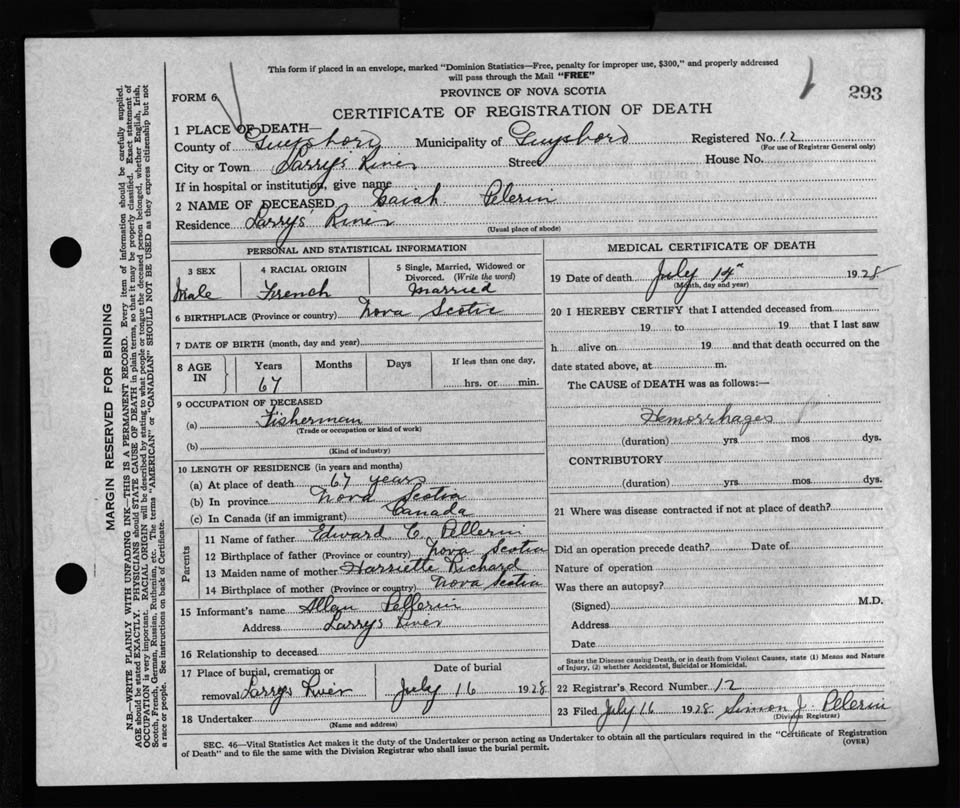 This form if placed in an envelope, marked "Dominion Statistics—Free, penalty for improper use, $300," and properly addressed
will pass through the Mail "FREE"
FORM 6
PROVINCE OF NOVA SCOTIA
293
CERTIFICATE OF REGISTRATION OF DEATH
1 PLACE OF DEATH—
County of Guysboro Municipality of Guysboro Registered No. 12
(For use of Registrar General only)
City or Town Larrys River Street House No.
If in hospital or institution, give name
2 NAME OF DECEASED Isaiah Pelerin
Residence Larrys' River
(Usual place of abode)
PERSONAL AND STATISTICAL INFORMATION
3 SEX 4 RACIAL ORIGIN 5 Single, Married, Widowed or
Divorced. (Write the word)
Male French Married
6 BIRTHPLACE (Province or country) Nova Scotia
7 DATE OF BIRTH (month, day and year)
8 AGE IN Years Months Days If less than one day,
67 hrs. or min.
9 OCCUPATION OF DECEASED
(a) Fisherman
(Trade or occupation or kind of work)
(b)
(Kind of industry)
10 LENGTH OF RESIDENCE (in years and months)
(a) At place of death 67 years
(b) In province Nova Scotia
(c) In Canada (if an immigrant) Canada
Parents
11 Name of father Edward C. Pellerin
12 Birthplace of father (Province or country) Nova Scotia
13 Maiden name of mother Harriette Richard
14 Birthplace of mother (Province or country) Nova Scotia
15 Informant's name Allen Pellerin
Address Larrys River
16 Relationship to deceased
17 Place of burial, cremation or Date of burial
removal Larrys River July 16 1928
18 Undertaker
(Name and address)
MEDICAL CERTIFICATE OF DEATH
19 Date of death July 14th 1928
(Month, day and year)
20 I HEREBY CERTIFY that I attended deceased from
19 to 19 that I last saw
h alive on 19 and that death occurred on the
date stated above, at m.
The CAUSE of DEATH was as follows:—
Hemorrhages
(duration) yrs mos dys.
CONTRIBUTORY
(duration) yrs. mos dys.
21 Where was disease contracted if not at place of death?
Did an operation precede death? Date of
Nature of operation
Was there an autopsy?
(Signed) M.D.
Address
Date
State the Disease causing Death, or in death from Violent Causes, state (1) Means and Nature
of Injury, (2) whether Accidental, Suicidal or Homicidal.
22 Registrar's Record Number 12
23 Filed July 16 1928 Simon J. Pelerin
(Division Registrar)
SEC. 46—Vital Statistics Act makes it the duty of the Undertaker or person acting as Undertaker to obtain all the particulars required in the "Certificate of Registration
of Death" and to file the same with the Division Registrar who shall issue the burial permit.
(OVER)
MARGIN RESERVED FOR BINDING
N.B.—WRITE PLAINLY WITH UNFADING INK—THIS IS A PERMANENT RECORD. Every item of information should be carefully supplied.
AGE should be stated EXACTLY. PHYSICIANS should STATE CAUSE OF DEATH in plain terms, so that it may be properly classified. Exact statement of
OCCUPATION is very important. RACIAL ORIGIN will be described by stating to what people or tongue the deceased person belonged, whether English, Irish,
Scotch, French, German, Russian, Ruthenian, etc. The terms "AMERICAN" or "CANADIAN" SHOULD NOT BE USED as they express citizenship but not
a race or people. See instructions on back of Certificate.